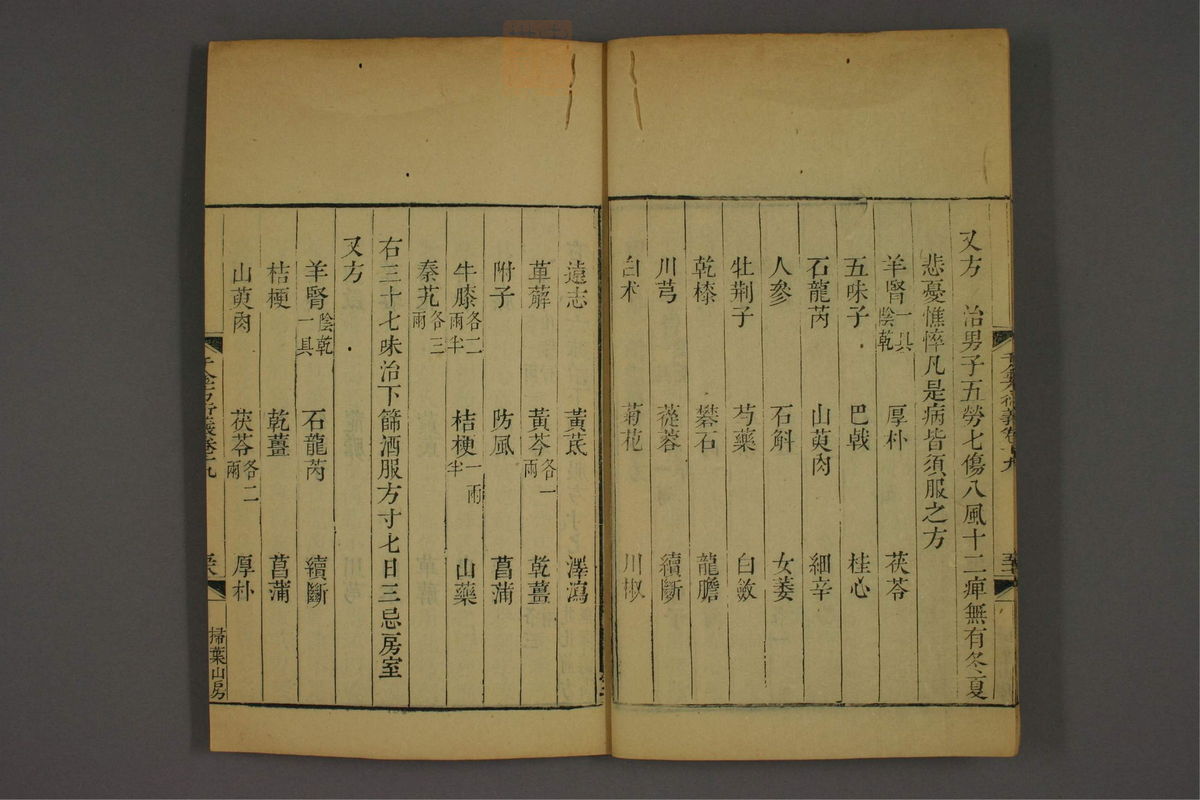 又方　治男子五勞七傷八風十二痺無有冬夏
悲憂憔悴凡是病皆須服之方
羊腎一具陰乾　厚朴　茯苓
五味子　巴戟　桂心
石龍芮　山萸肉　細辛
人參　石斛　女萎
牡荆子　芍藥　白斂
乾𣾰　礬石　龍膽
川芎　蓯蓉　續斷
白术　菊花　川椒
遠志　黃芪　澤瀉
萆薢　黃芩各一兩　乾薑
附子　防風　菖蒲
牛膝各二兩半　桔梗一兩半　山藥
秦艽各三兩
右三十七味治下篩酒服方寸七日三忌房室
又方
羊腎一具陰乾　石龍芮　續斷
桔梗　乾薑　菖蒲
山萸肉　茯苓各二兩　厚朴
千金方衍義卷十九
掃葉山房